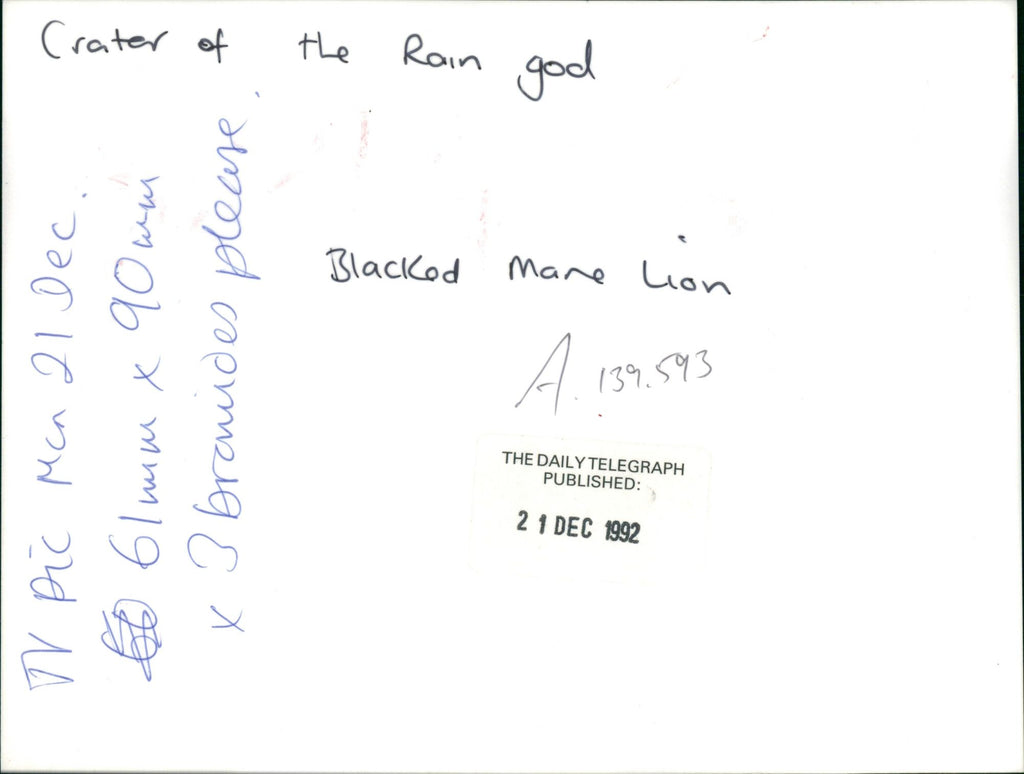 Crater of the Rain god
Blacked Mane Lion
A. 139.593
THE DAILY TELEGRAPH
PUBLISHED:
21 DEC 1992
TV pic Mon 21 Dec.
61mm x 90mm
x 3 bromides please.